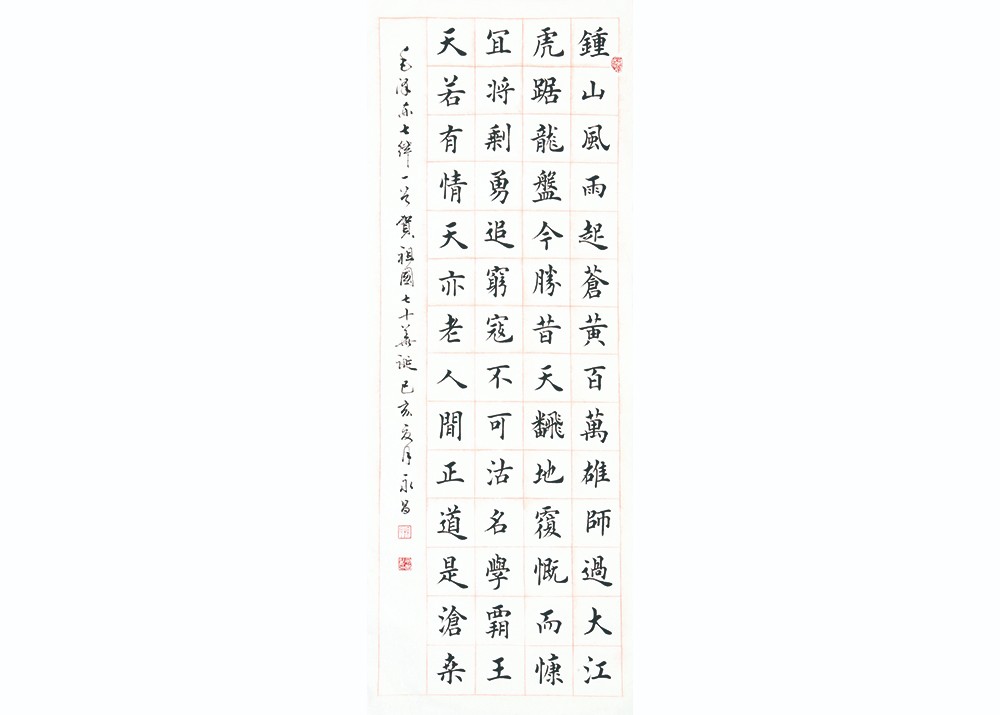 鍾山風雨起蒼黃百萬雄師過大江
虎踞龍盤今勝昔天飜地覆慨而慷
冝将剩勇追窮寇不可沽名學霸王
天若有情天亦老人間正道是滄桒
毛澤东七律一首賀祖國七十華誕己亥夏月永昌